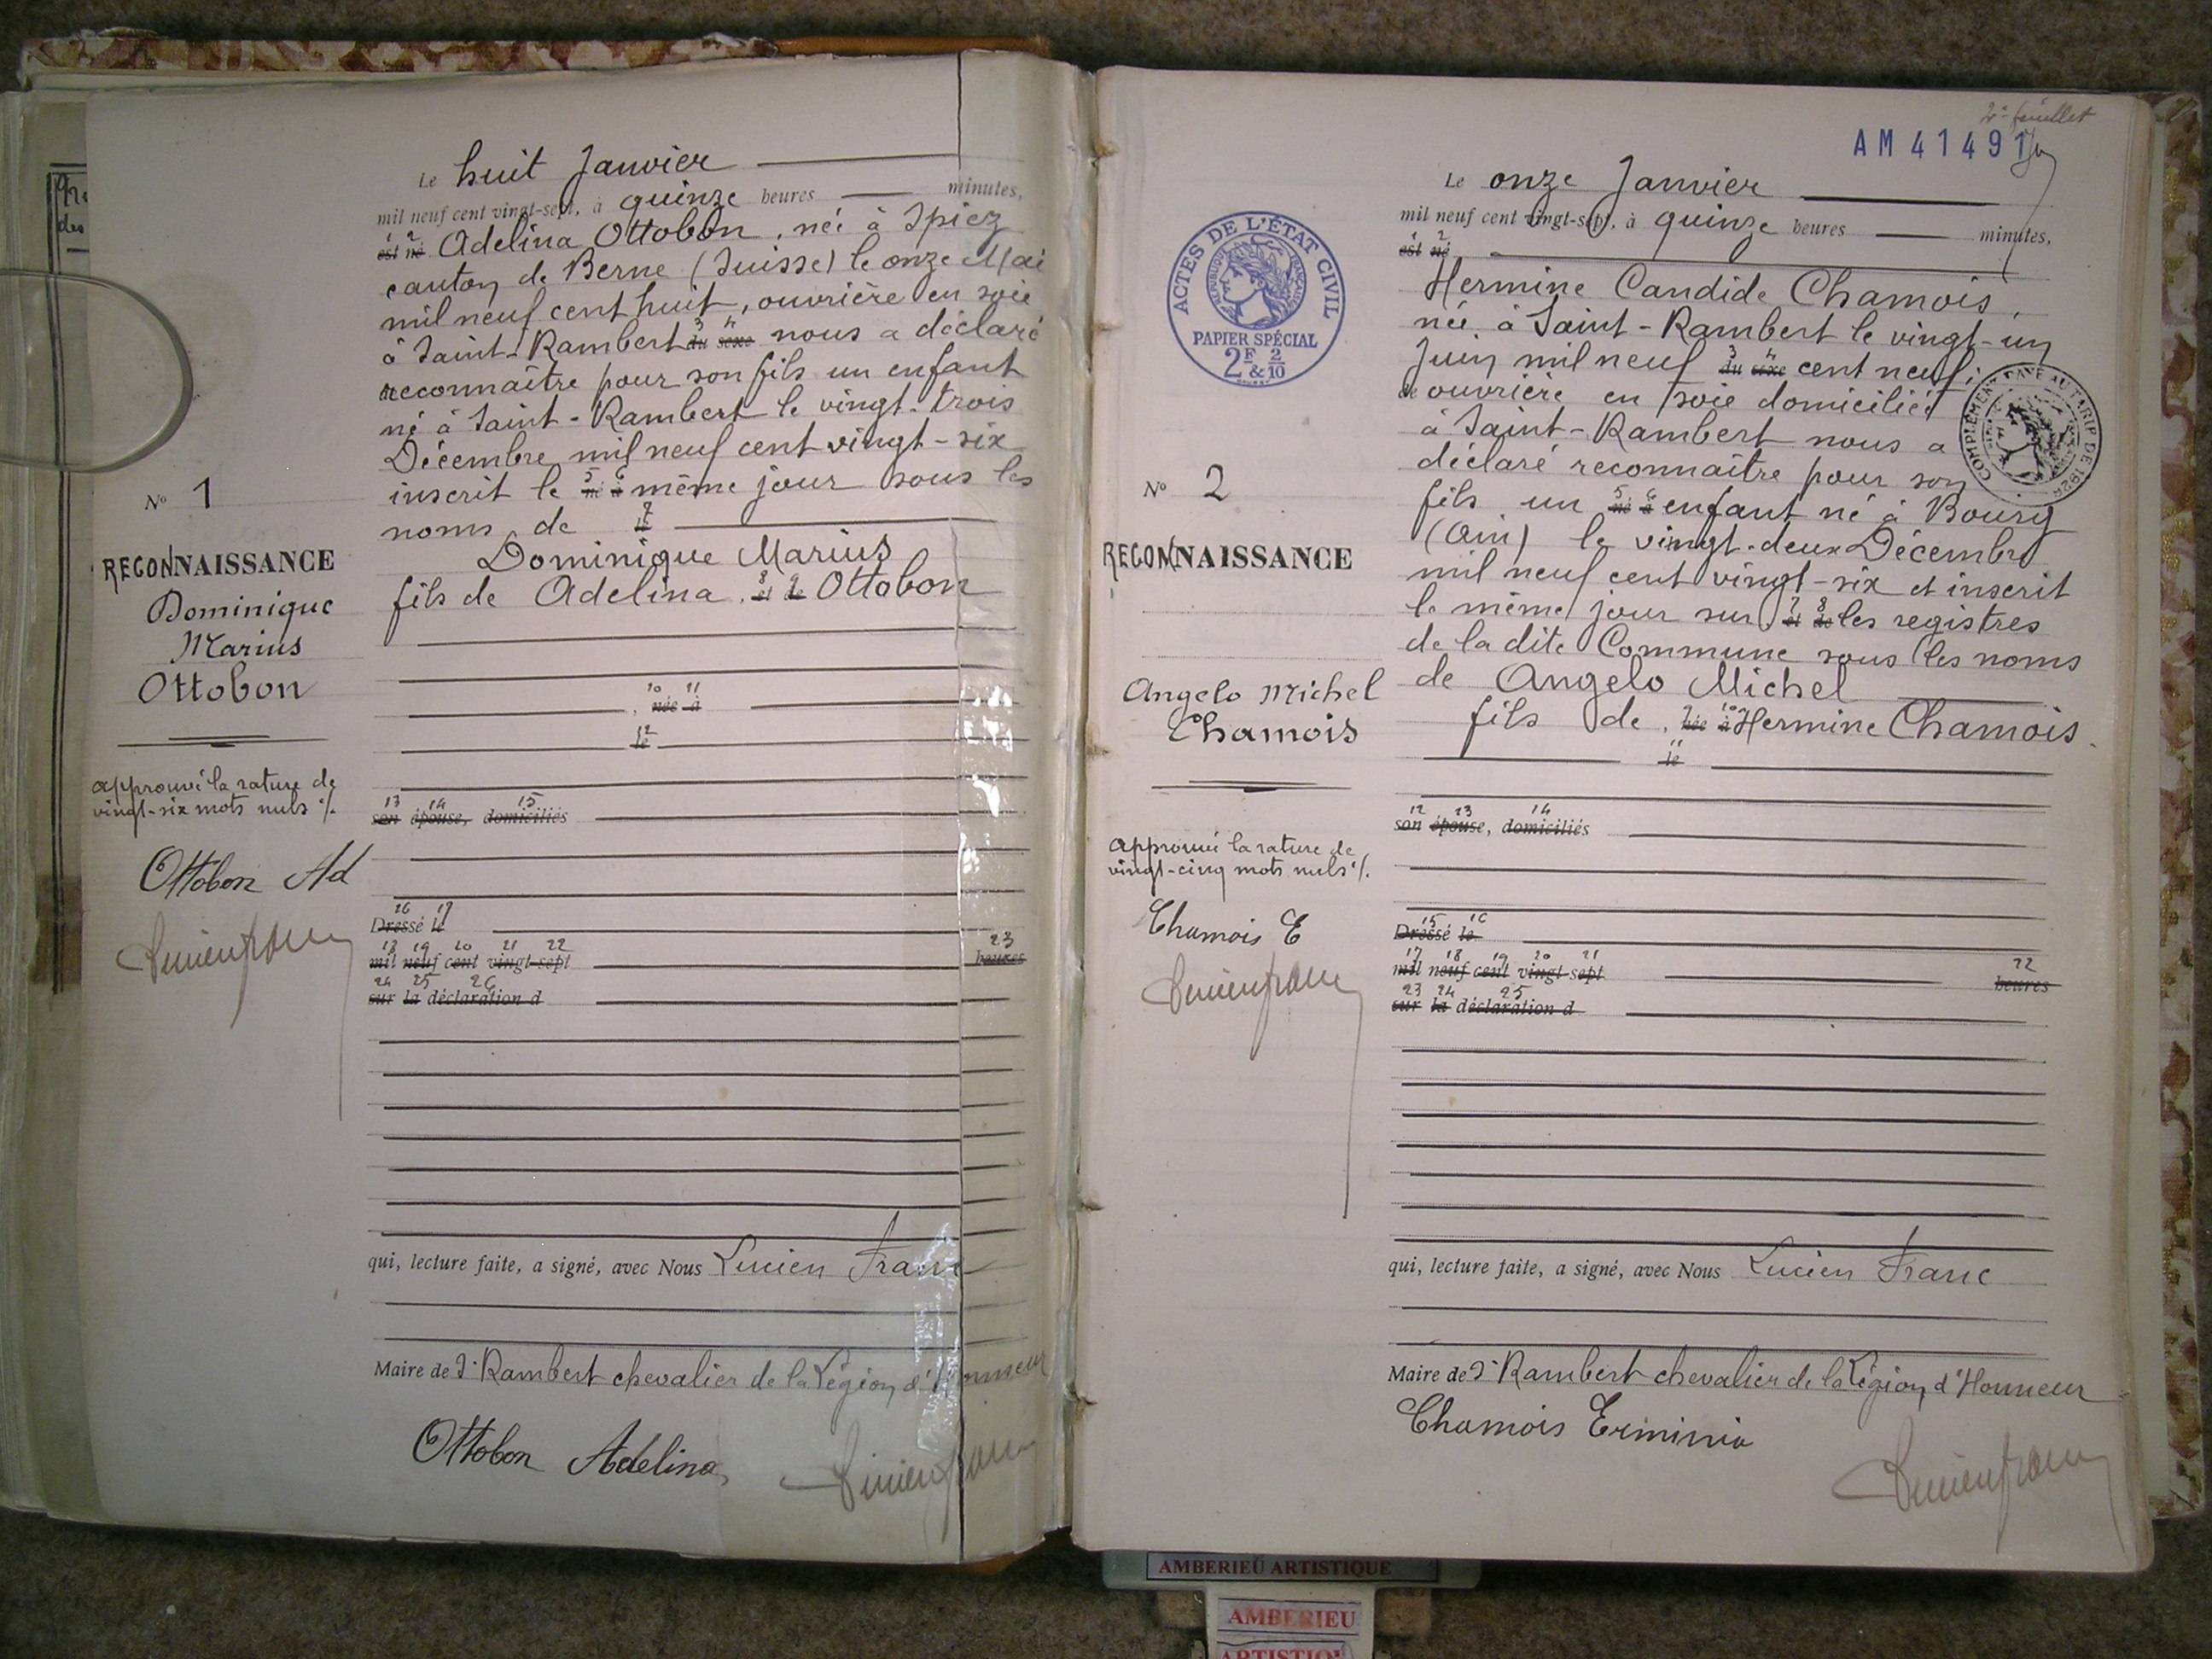 Le huit Janvier
mil neuf cent vingt-sept, à quinze heures minutes,
1 2
est né Adelina Ottobon, née à Spiez
canton de Berne (Suisse) le onze Mai
mil neuf cent huit, ouvrière en soie
3 4
à Saint-Rambert du sexe nous a déclaré
reconnaître pour son fils un enfant
né à Saint-Rambert le vingt-trois
Décembre mil neuf cent vingt-six
5 6
inscrit le né à même jour sous les
7
noms de le
Dominique Marius
8 9
fils de Adelina, et de Ottobon
10 11
, née à
12
le
13 14 15
son épouse, domiciliés
16 17
Dressé le
18 19 20 21 22 23
mil neuf cent vingt-sept heures
24 25 26
sur la déclaration d
qui, lecture faite, a signé, avec Nous Lucien Franc
Maire de St Rambert chevalier de la Légion d'Honneur
Ottobon Adelina
Lucien franc
N° 1
RECONNAISSANCE
Dominique
Marius
Ottobon
approuvé la rature de
vingt-six mots nuls %.
Ottobon Ad
Lucien franc
2e feuillet
AM 41491
ACTES DE L'ÉTAT CIVIL
RÉPUBLIQUE FRANÇAISE
PAPIER SPÉCIAL
2F & 2/10
COMPLÉMENT PAYÉ AU TARIF DE 1926
Le onze Janvier
mil neuf cent vingt-sept, à quinze heures minutes,
1 2
est né
Hermine Candide Chamois,
née à Saint-Rambert le vingt-un
3 4
Juin mil neuf du sexe cent neuf;
de ouvrière en soie domiciliée
à Saint-Rambert nous a
déclaré reconnaître pour son
5 6
fils un né à enfant né à Bourg
(Ain) le vingt-deux Décembre
mil neuf cent vingt-six et inscrit
7 8
le même jour sur et de les registres
de la dite Commune sous les noms
de Angelo Michel
9 10
fils de, née à Hermine Chamois.
11
le
12 13 14
son épouse, domiciliés
15 16
Dressé le
17 18 19 20 21 22
mil neuf cent vingt-sept heures
23 24 25
sur la déclaration d
qui, lecture faite, a signé, avec Nous Lucien Franc
Maire de St Rambert chevalier de la Légion d'Honneur
Chamois Erminia
Lucien franc
N° 2
RECONNAISSANCE
Angelo Michel
Chamois
approuvé la rature de
vingt-cinq mots nuls %.
Chamois E
Lucien franc
AMBERIEU ARTISTIQUE
AMBERIEU
ARTISTIQUE